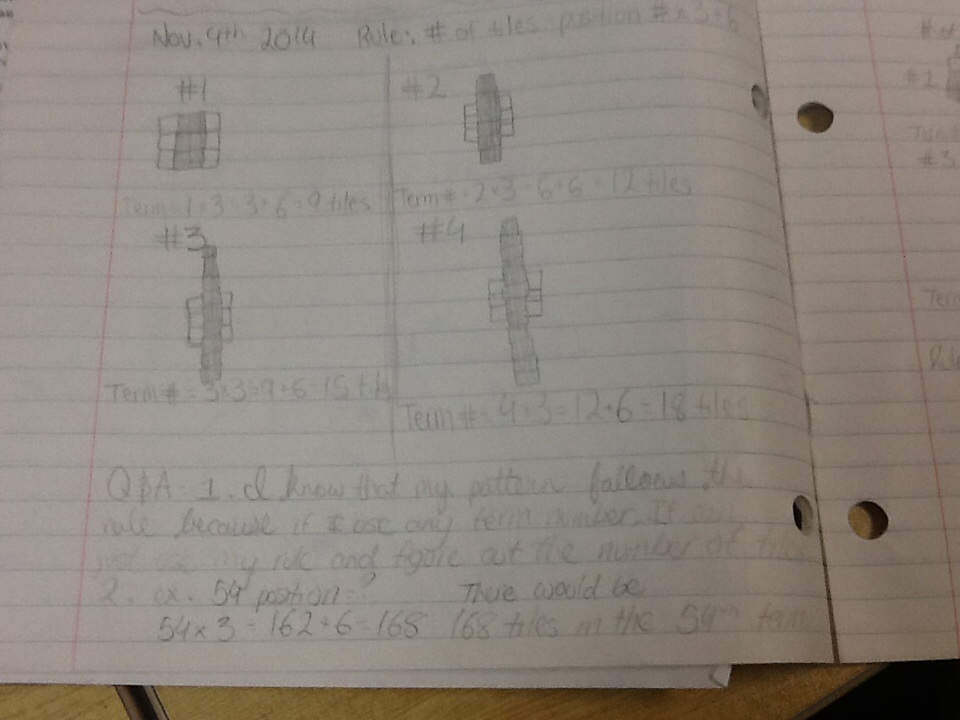 Nov. 4th 2014 Rule: # of tiles = position # × 3 + 6
#1
#2
Term = 1×3=3+6=9 tiles
Term # = 2×3=6+6=12 tiles
#3
#4
Term # = 3×3=9+6=15 tiles
Term # = 4×3=12+6=18 tiles
Q&A 1. I know that my pattern follows the
rule because if I use any term number. It
just use my rule and figure out the number of tiles
2. ex. 54 position = ? There would be
54×3=162+6=168 168 tiles in the 54th term
# of
#1
#3
Term
Rule